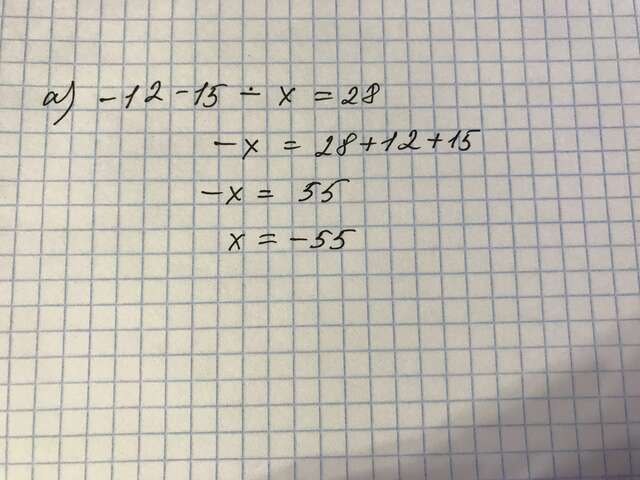 а) -12-15 - x = 28
-x = 28+12+15
-x = 55
x = -55